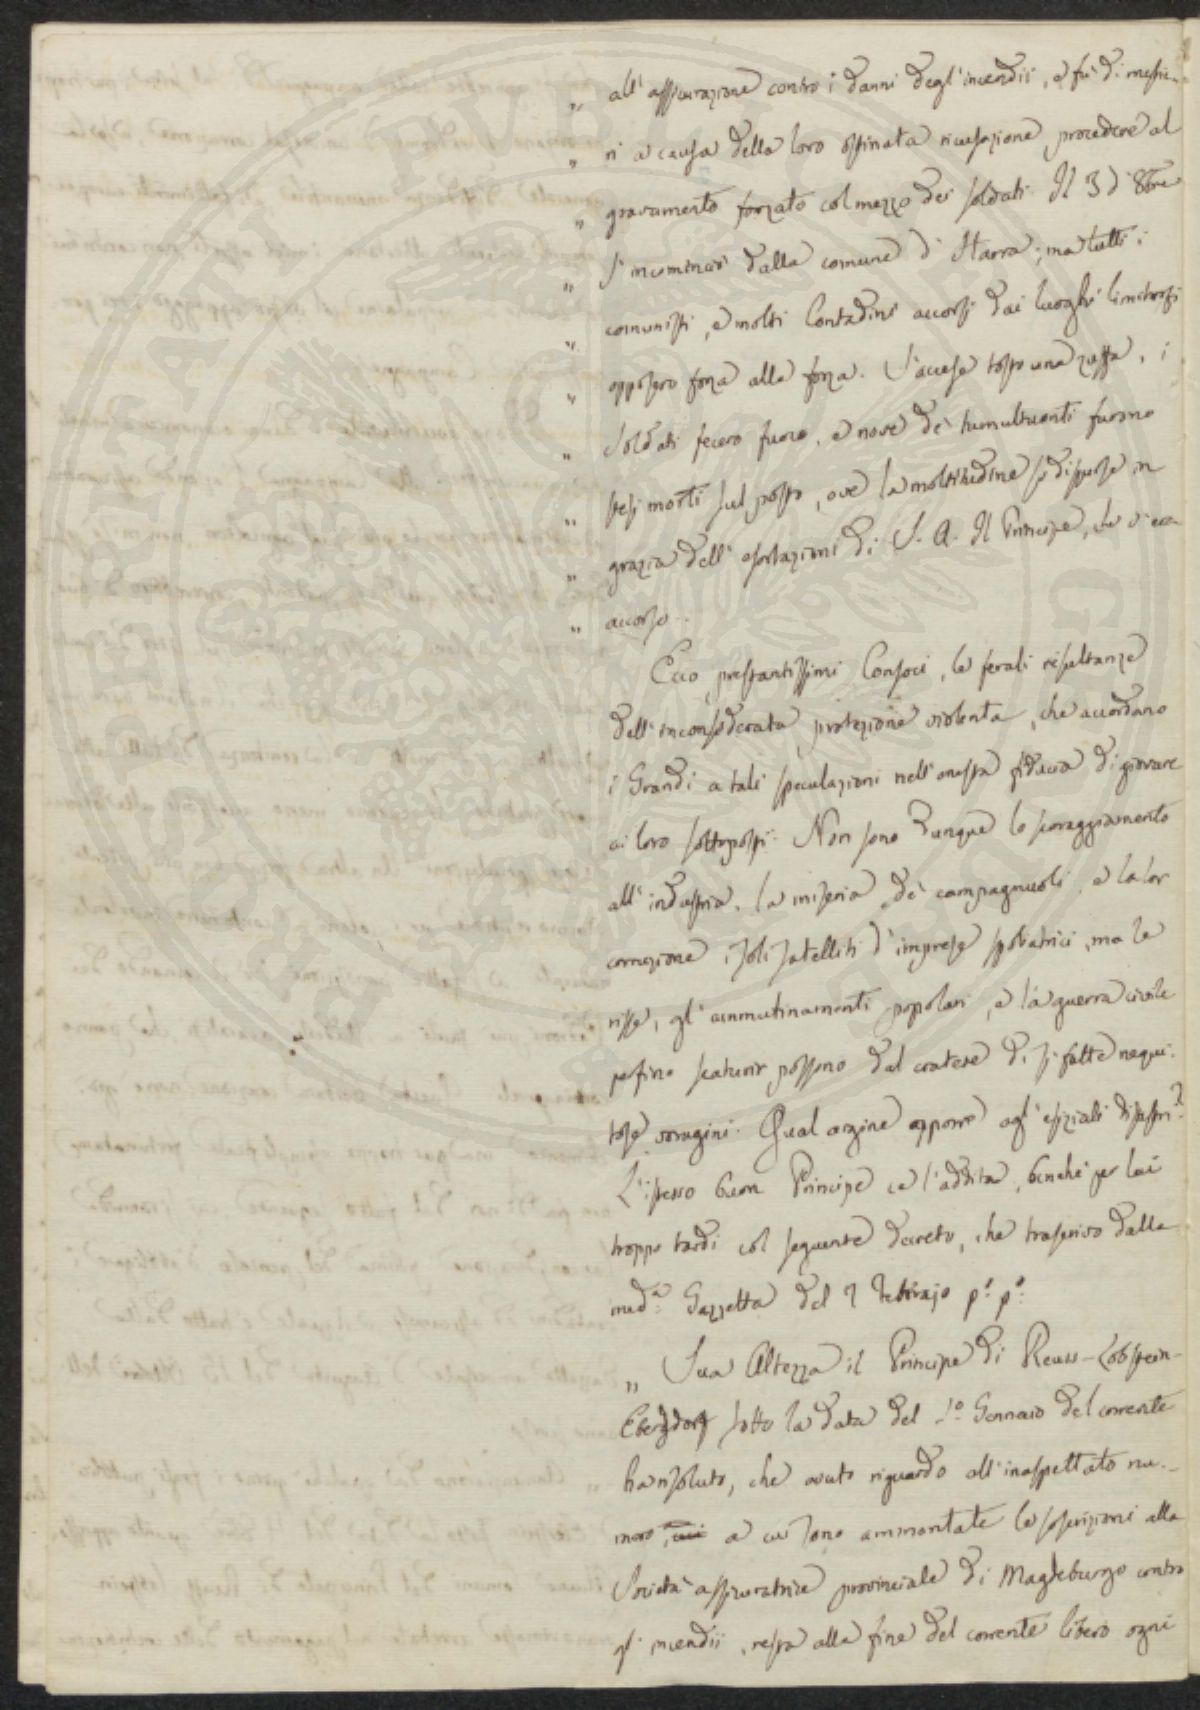 „ all'assicurazione contro i danni degl'incendii, e fù di mestie-
„ ri a causa della loro ostinata ricusazione procedere al
„ gravamento forzato col mezzo dei soldati. Il 3 d'8bre
„ s'incominciò dalla comune d'Harra; ma tutti i
„ comunisti, e molti Contadini accorsi dai luoghi limitrofi
„ opposero forza alla forza. S'accese tosto una zuffa, i
„ soldati fecero fuoco, e nove de' tumultuanti furono
„ stesi morti sul posto, ove la moltitudine si disperse in
„ grazia dell'esortazioni di S. A. Il Principe, che v'era
„ accorso..
Ecco, prestantissimi Consoci, le ferali risultanze
dell'inconsiderata protezione violenta, che accordano
i Grandi a tali speculazioni nell'onesta fiducia di giovare
ai loro sottoposti. Non sono dunque lo scoraggiamento
all'industria, la miseria de' campagnuoli, e la lor
corruzione i soli satelliti d'imprese spoliatrici, ma le
risse, gl'ammutinamenti popolari, e la guerra civile
perfino scaturir possono dal cratere di sì fatte nequi-
tose voragini. Qual argine opporre agl'esiziali disastri?
L'istesso buon Principe ce l'addita, benchè per lui
troppo tardi col seguente decreto, che trascrivo dalla
meda. Gazzetta del 7 Febbrajo po. po.
„ Sua Altezza il Principe di Reuss-Lobstein-
Ebersdorf sotto la data del 1o. Gennaio del corrente
ha risoluto, che avuto riguardo all'inaspettato nu-
mero, a cui sono ammontate le soscrizioni alla
Società assicuratrice provinciale di Magdeburgo contro
gl'incendii, resta alla fine del corrente libero ogni